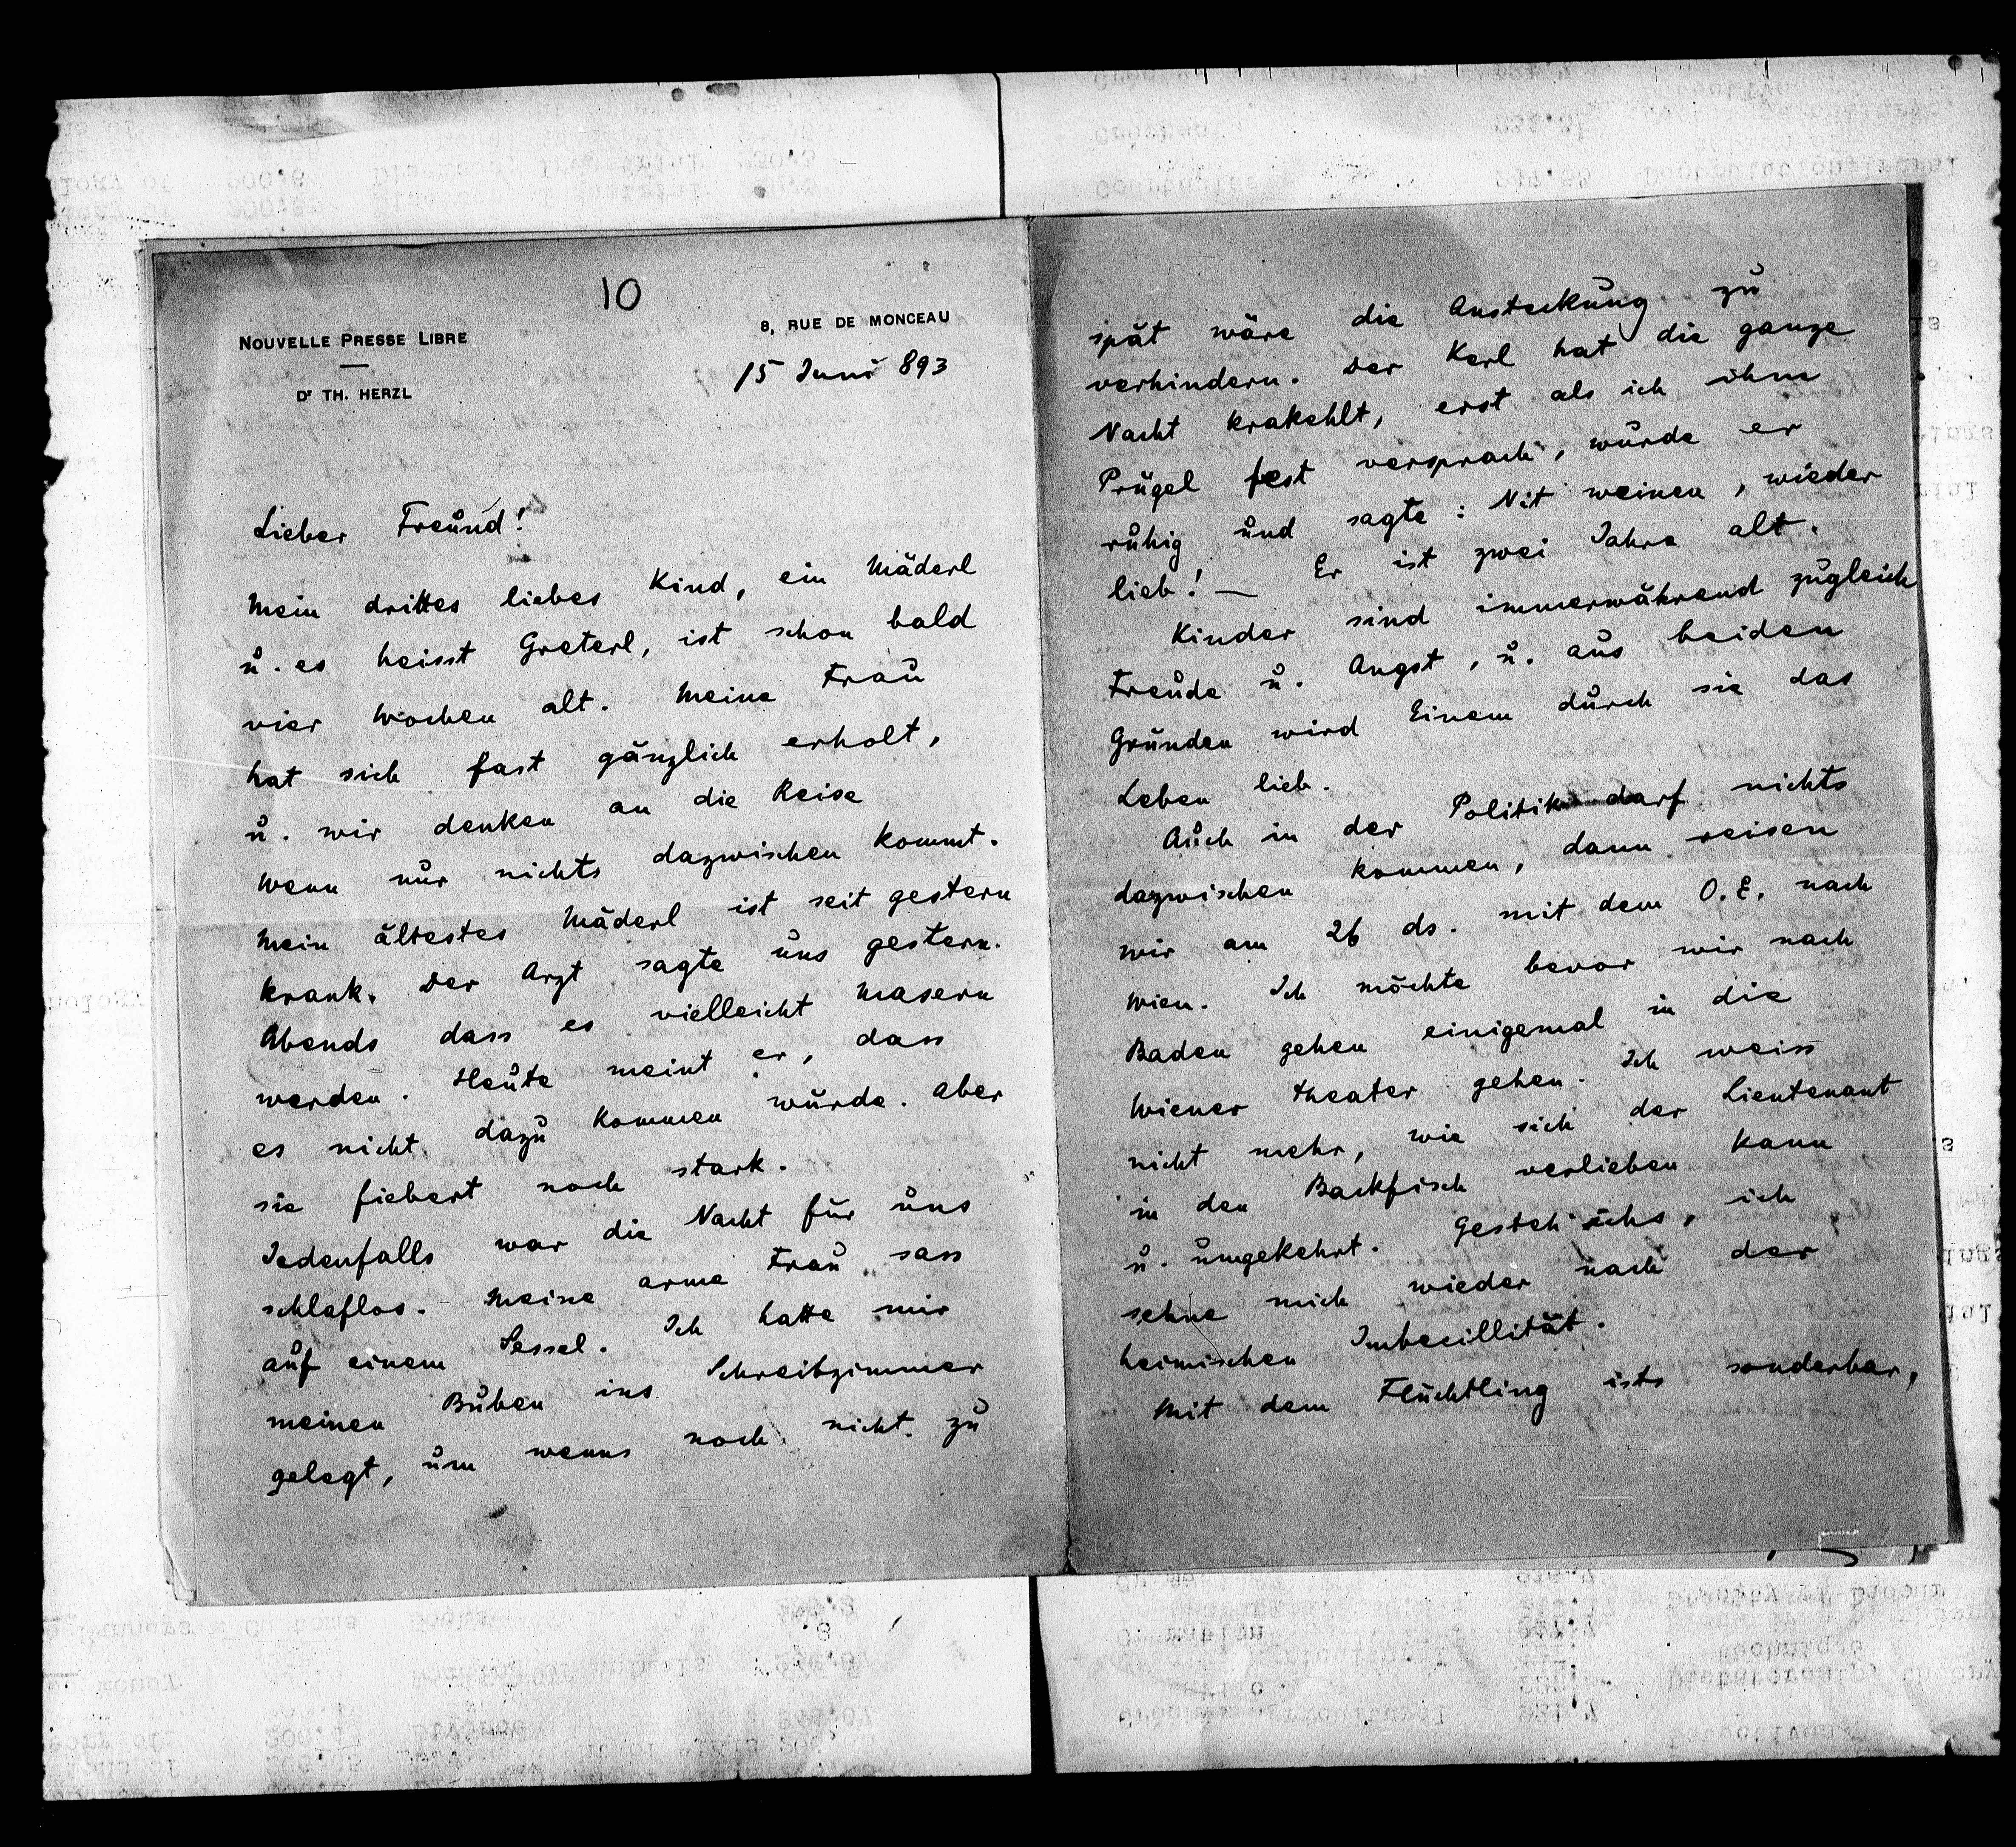 10
NOUVELLE PRESSE LIBRE
Dr TH. HERZL
8, RUE DE MONCEAU
15 Juni 893
Lieber Freund!
Mein drittes liebes Kind, ein Mäderl
u. es heisst Greterl, ist schon bald
vier Wochen alt. Meine Frau
hat sich fast gänzlich erholt,
u. wir denken an die Reise
wenn nur nichts dazwischen kommt.
Mein ältestes Mäderl ist seit gestern
krank. Der Arzt sagte uns gestern
Abends dass es vielleicht Masern
werden. Heute meint er, dass
es nicht dazu kommen würde. Aber
sie fiebert noch stark.
Jedenfalls war die Nacht für uns
schlaflos. Meine arme Frau sass
auf einem Sessel. Ich hatte mir
meinen Buben ins Schreibzimmer
gelegt, um wenns noch nicht zu
spät wäre die Ansteckung zu
verhindern. Der Kerl hat die ganze
Nacht krakehlt, erst als ich ihm
Prügel fest versprach, wurde er
ruhig und sagte: Nit weinen, wieder
lieb! — Er ist zwei Jahre alt.
Kinder sind immerwährend zugleich
Freude u. Angst, u. aus beiden
Gründen wird Einem durch sie das
Leben lieb.
Auch in der Politik darf nichts
dazwischen kommen, dann reisen
wir am 26 ds. mit dem O.E. nach
Wien. Ich möchte bevor wir nach
Baden gehen einigemal in die
Wiener Theater gehen. Ich weiss
nicht mehr, wie sich der Lieutenant
in den Backfisch verlieben kann
u. umgekehrt. Gesteh ichs, ich
sehne mich wieder nach der
heimischen Imbecillität.
Mit dem Flüchtling ists sonderbar,